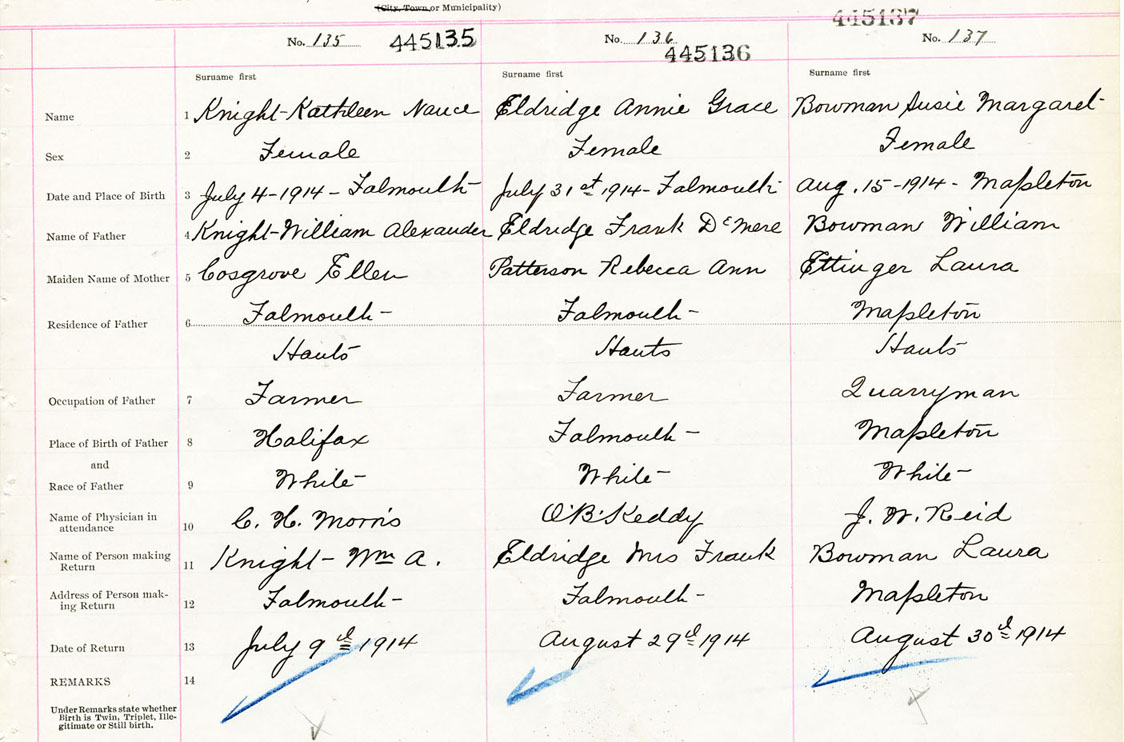 (City, Town or Municipality)
No. 135 445135 No. 136 445136 445137 No. 137
Surname first Surname first Surname first
Name 1 Knight-Kathleen Eldridge Annie Grace Bowman Susie Margaret
Sex 2 Female Female Female
Date and Place of Birth 3 July 4-1914-Falmouth July 31st 1914-Falmouth Aug. 15-1914-Mapleton
Name of Father 4 Knight-William Alexander Eldridge Frank Bowman William
Maiden Name of Mother 5 Cosgrove Ellen Patterson Rebecca Ann Ettinger Laura
Residence of Father 6 Falmouth- Falmouth- Mapleton
Hants Hants Hants
Occupation of Father 7 Farmer Farmer Quarryman
Place of Birth of Father 8 Halifax Falmouth- Mapleton
and
Race of Father 9 White White White
Name of Physician in
attendance 10 C. H. Morris O'B'Keddy J. W. Reid
Name of Person making
Return 11 Knight-Wm A. Eldridge Mrs Frank Bowman Laura
Address of Person mak-
ing Return 12 Falmouth- Falmouth- Mapleton
Date of Return 13 July 9th 1914 August 29th 1914 August 30th 1914
REMARKS 14
Under Remarks state whether
Birth is Twin, Triplet, Ille-
gitimate or Still birth.